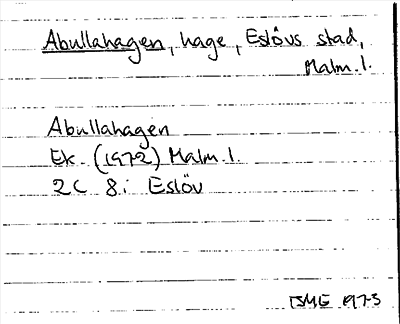 Abullahagen, hage, Eslövs stad,
Malm.l.
Abullahagen
Ek. (1972) Malm.l.
2C 8i Eslöv
1973